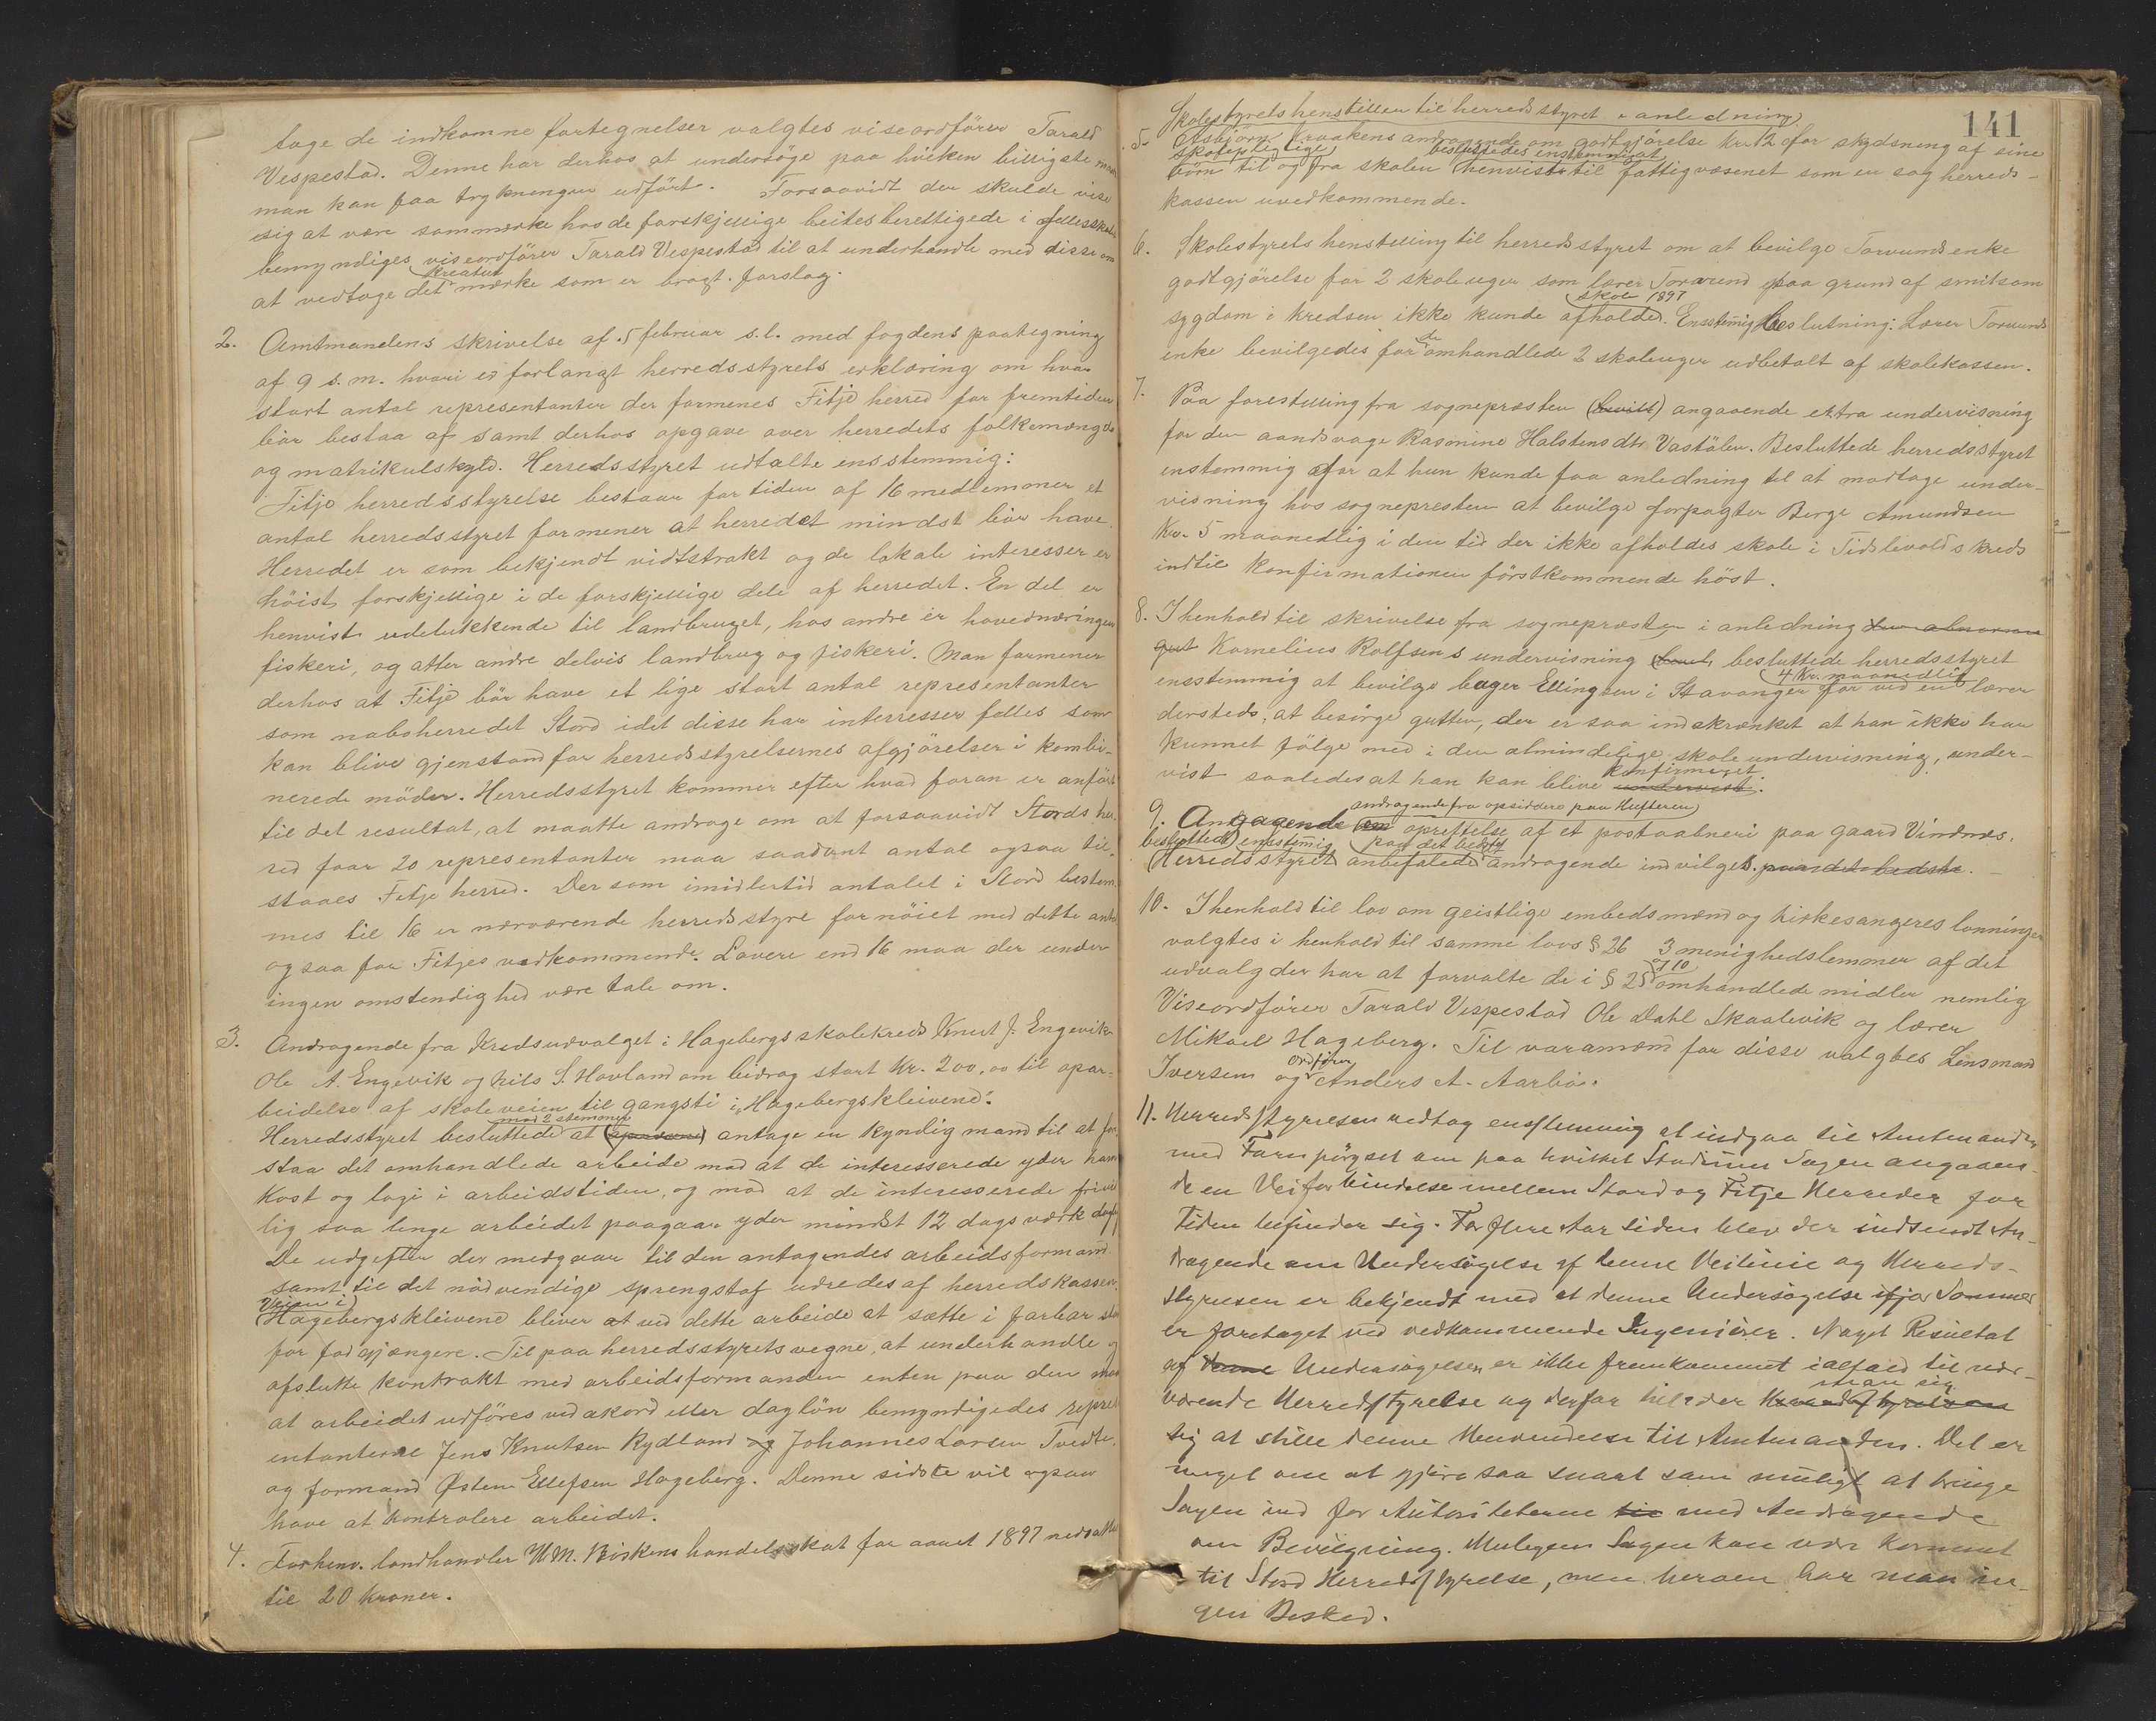 tage de indkomne fortegnelser valgtes viseordförer Tarald
Vespestad. Denne har derhos at undersöge paa hviken billigste maa
man kan faa trykningen udfört. Forsaavidt der skulde vise
sig at være sammærke hos de forskjellige beitesberettigede i
bemyndiges viseordförer Tarald Vespestad til at underhandle med disse om
at vedtage det kreatur mærke som er bragt i forslag.
2. Amtmandens skrivelse af 5 februar s.l. med fogdens paategning
af 9 s.m. hvori er forlangt herredsstyrets erklæring om hvor
stort antal representanter der formenes Fitje herred for fremtiden
bör bestaa af samt derhos opgave over herredets folkemængde
og matrikulskyld. Herredsstyret udtalte ensstemmig:
Fitje herredsstyrelse bestaar for tiden af 16 medlemmer et
antal herredsstyret formener at herredet mindst bör have.
Herredet er som bekjendt vidtstrakt og de lokale interesser er
höist forskjellige i de forskjellige dele af herredet. En del er
henvist udelukkende til landbruget, hos andre er hovednæringen
fiskeri, og atter andre delvis landbrug og fiskeri. Man formener
derhos at Fitje bör have et lige stort antal representanter
som naboherredet Stord idet disse har interresser felles som
kan blive gjenstand for herredsstyrelsernes afgjörelser i kombi-
nerede möder. Herredsstyret kommer efter hvad foran er anfört
til det resultat, at maatte andrage om at forsaavidt Stords her-
red faar 20 representanter maa saadant antal ogsaa til-
staaes Fitje herred. Dersom imidlertid antalet i Stord bestem-
mes til 16 er nærværende herredsstyre fornöiet med dette antal
ogsaa for Fitjes vedkommende. Lavere end 16 maa der under
ingen omstendighed være tale om.
3. Andragende fra Kredsudvalget i Hagebergs skolekreds Knut J. Engevik
Ole A. Engevik og Nils S. Hovland om bidrag stort Kr. 200,00 til opar-
beidelse af skoleveien til gangsti i "Hagebergskleivene".
Herredsstyret besluttede mod 2 stemmer at antage en kyndig mand til at fore-
staa det omhandlede arbeide mod at de interesserede yder ham
kost og logi i arbeidstiden, og mod at de interesserede frivil-
lig saa lenge arbeidet paagaar yder mindst 12 dagsværk daglig
De udgifter der medgaar til den antagendes arbeidsformand
samt til det nödvendige sprengstof udredes af herredskassen.
Veien i Hagebergskleivene bliver at ved dette arbeide at sætte i farbar stand
for fodgjængere. Til paa herredsstyrets vegne, at underhandle og
afslutte kontrakt med arbeidsformanden enten paa den maade
at arbeidet udföres ved akord eller daglön bemyndigedes repres
entanterne Jens Knutsen Rydland og Johannes Larsen Tvedte,
og formand Østen Ellefsen Hageberg. Denne sidste vil ogsaa
have at kontrolere arbeidet.
4. Forhenv. landhandler W. M. handelsskat for aaret 1897 nedsattes
til 20 kroner.
141
Skolestyrets henstillen til herredsstyret i anledning
5. Asbjörn Kraakens andragende om godtgjörelse Kr. 12 for skydsning af sine
skolepligtige börn til og fra skolen besluttedes enstemmigt henvist til fattigvæsenet som en sag herreds-
kassen uvedkommende.
6. Skolestyrets henstilling til herredsstyret om at bevilge Torvunds enke
godtgjörelse for 2 skoleuger som lærer Torvund paa grund af smitsom
sygdom i kredsen ikke kunde skole 1897 afholdes. Ensstemig beslutning: Lærer Torvunds
enke bevilgedes for de omhandlede 2 skoleuger udbetalt af skolekassen.
7. Paa forestilling fra sognepræsten angaaende extra undervisning
for den aandsvage Rasmine Halstensdtr. Vastölen. Besluttede herredsstyret
enstemmig for at hun kunde faa anledning til at modtage under-
visning hos sognepresten at bevilge forpagter Berge Amundsen
Kr. 5 maanedlig i den tid der ikke afholdes skole i Tislevolds kreds
indtil konfirmationen förstkommende höst.
8. I henhold til skrivelse fra sognepræsten i anledning den abnorme
gut Kornelius Rolfsens undervisning besluttede herredsstyret
ensstemmig at bevilge bager Ellingsen i Stavanger 4 Kr. maanedlig for ved en lærer
dersteds, at besörge gutten, der er saa indskrænket at han ikke har
kunnet fölge med i den almindelige skoleundervisning, under-
vist saaledes at han kan blive konfirmeret undervist.
9. Angaaende andragende fra opsiddere paa Hufteren om oprettelse af et postaabneri paa gaard Vindnes.
besluttede ensstemig Herredsstyret paa det bedste anbefalede andragende indvilget paa det bedste.
10. I henhold til lov om geistlige embedsmænd og kirkesangeres lønninger
valgtes i henhold til samme lovs § 26 3 menighedslemmer af det
udvalg der har at forvalte de i § 25 og 10 omhandlede midler nemlig
Viseordförer Tarald Vespestad Ole Dahl Skaalevik og lærer
Mikael Hageberg. Til varamænd for disse valgtes Lensmand
Iversen og ordförer Anders A. Aarbö.
11. Herredsstyrelsen vedtog enstemmig at indgaa til Amtmanden
med Forespörgsel om paa hvilket Stadium Sagen angaaen-
de en Veiforbindelse mellem Stord og Fitje Herreder for
Tiden befinder sig. For flere Aar siden blev der indsendt An-
dragende om Undersögelse af denne Veilinie og Herreds-
styrelsen er bekjendt med at denne Undersögelse ifjor Sommer
er foretaget ved vedkommende Ingeniörer. Noget Resultat
af denne Undersögelsen er ikke fremkommet ialfald til nær-
værende Herredsstyrelse og derfor tillader man sig Herredsstyrelsen
sig at stille denne Henvendelse til Amtmanden. Det er
meget om at gjöre saa snart som muligt at bringe
Sagen ind for Autoriteterne til med Andragende
om Bevilgning. Muligens Sagen kan være kommet
til Stord Herredsstyrelse, men herom har man in-
gen Besked.